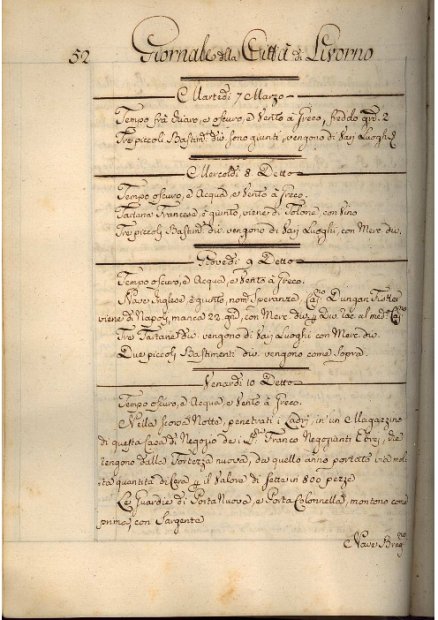 52 Giornale della Città di Livorno
Martedì 7 Marzo
Tempo frà chiaro, e oscuro, e Vento à Greco, freddo 2
Tre piccoli Bastim.ti div.i sono giunti, vengono di Varj Luoghi
Mercoldì 8 Detto
Tempo oscuro, e Acqua, e Vento à Greco.
Tartana Francese è giunto, viene di Tolone con Vino
Tre piccoli Bastim.ti div.i vengono di Varj Luoghi, con Merc div.
Giovedì 9 Detto
Tempo oscuro, e Acqua, e Vento à Greco.
Nave Inglese è giunto, nom.ta Speranza, Cap.no Dungar
viene di Napoli, manca 22 con Merc div.e al med.o Cap.no
Tre Tartane div.e vengono di Varj Luoghi con Merc div.
Due piccoli Bastimenti div.i vengono come Sopra.
Venardì 10 Detto
Tempo oscuro, e Acqua, e Vento à Greco.
Nella scorsa Notte, penetrati i Ladri, in un Magazzino
di questa Casa di Negozio de i Franco Negozianti Ebrej, che
tengono dalla Fortezza nuova, da quello anno portate via mol
ta quantità di Cera, il Valore di sette in 800 pezze
Le Guardie di Porta Nuova, e Porta Colonnella, montono come
prima, con Sargente
Nave